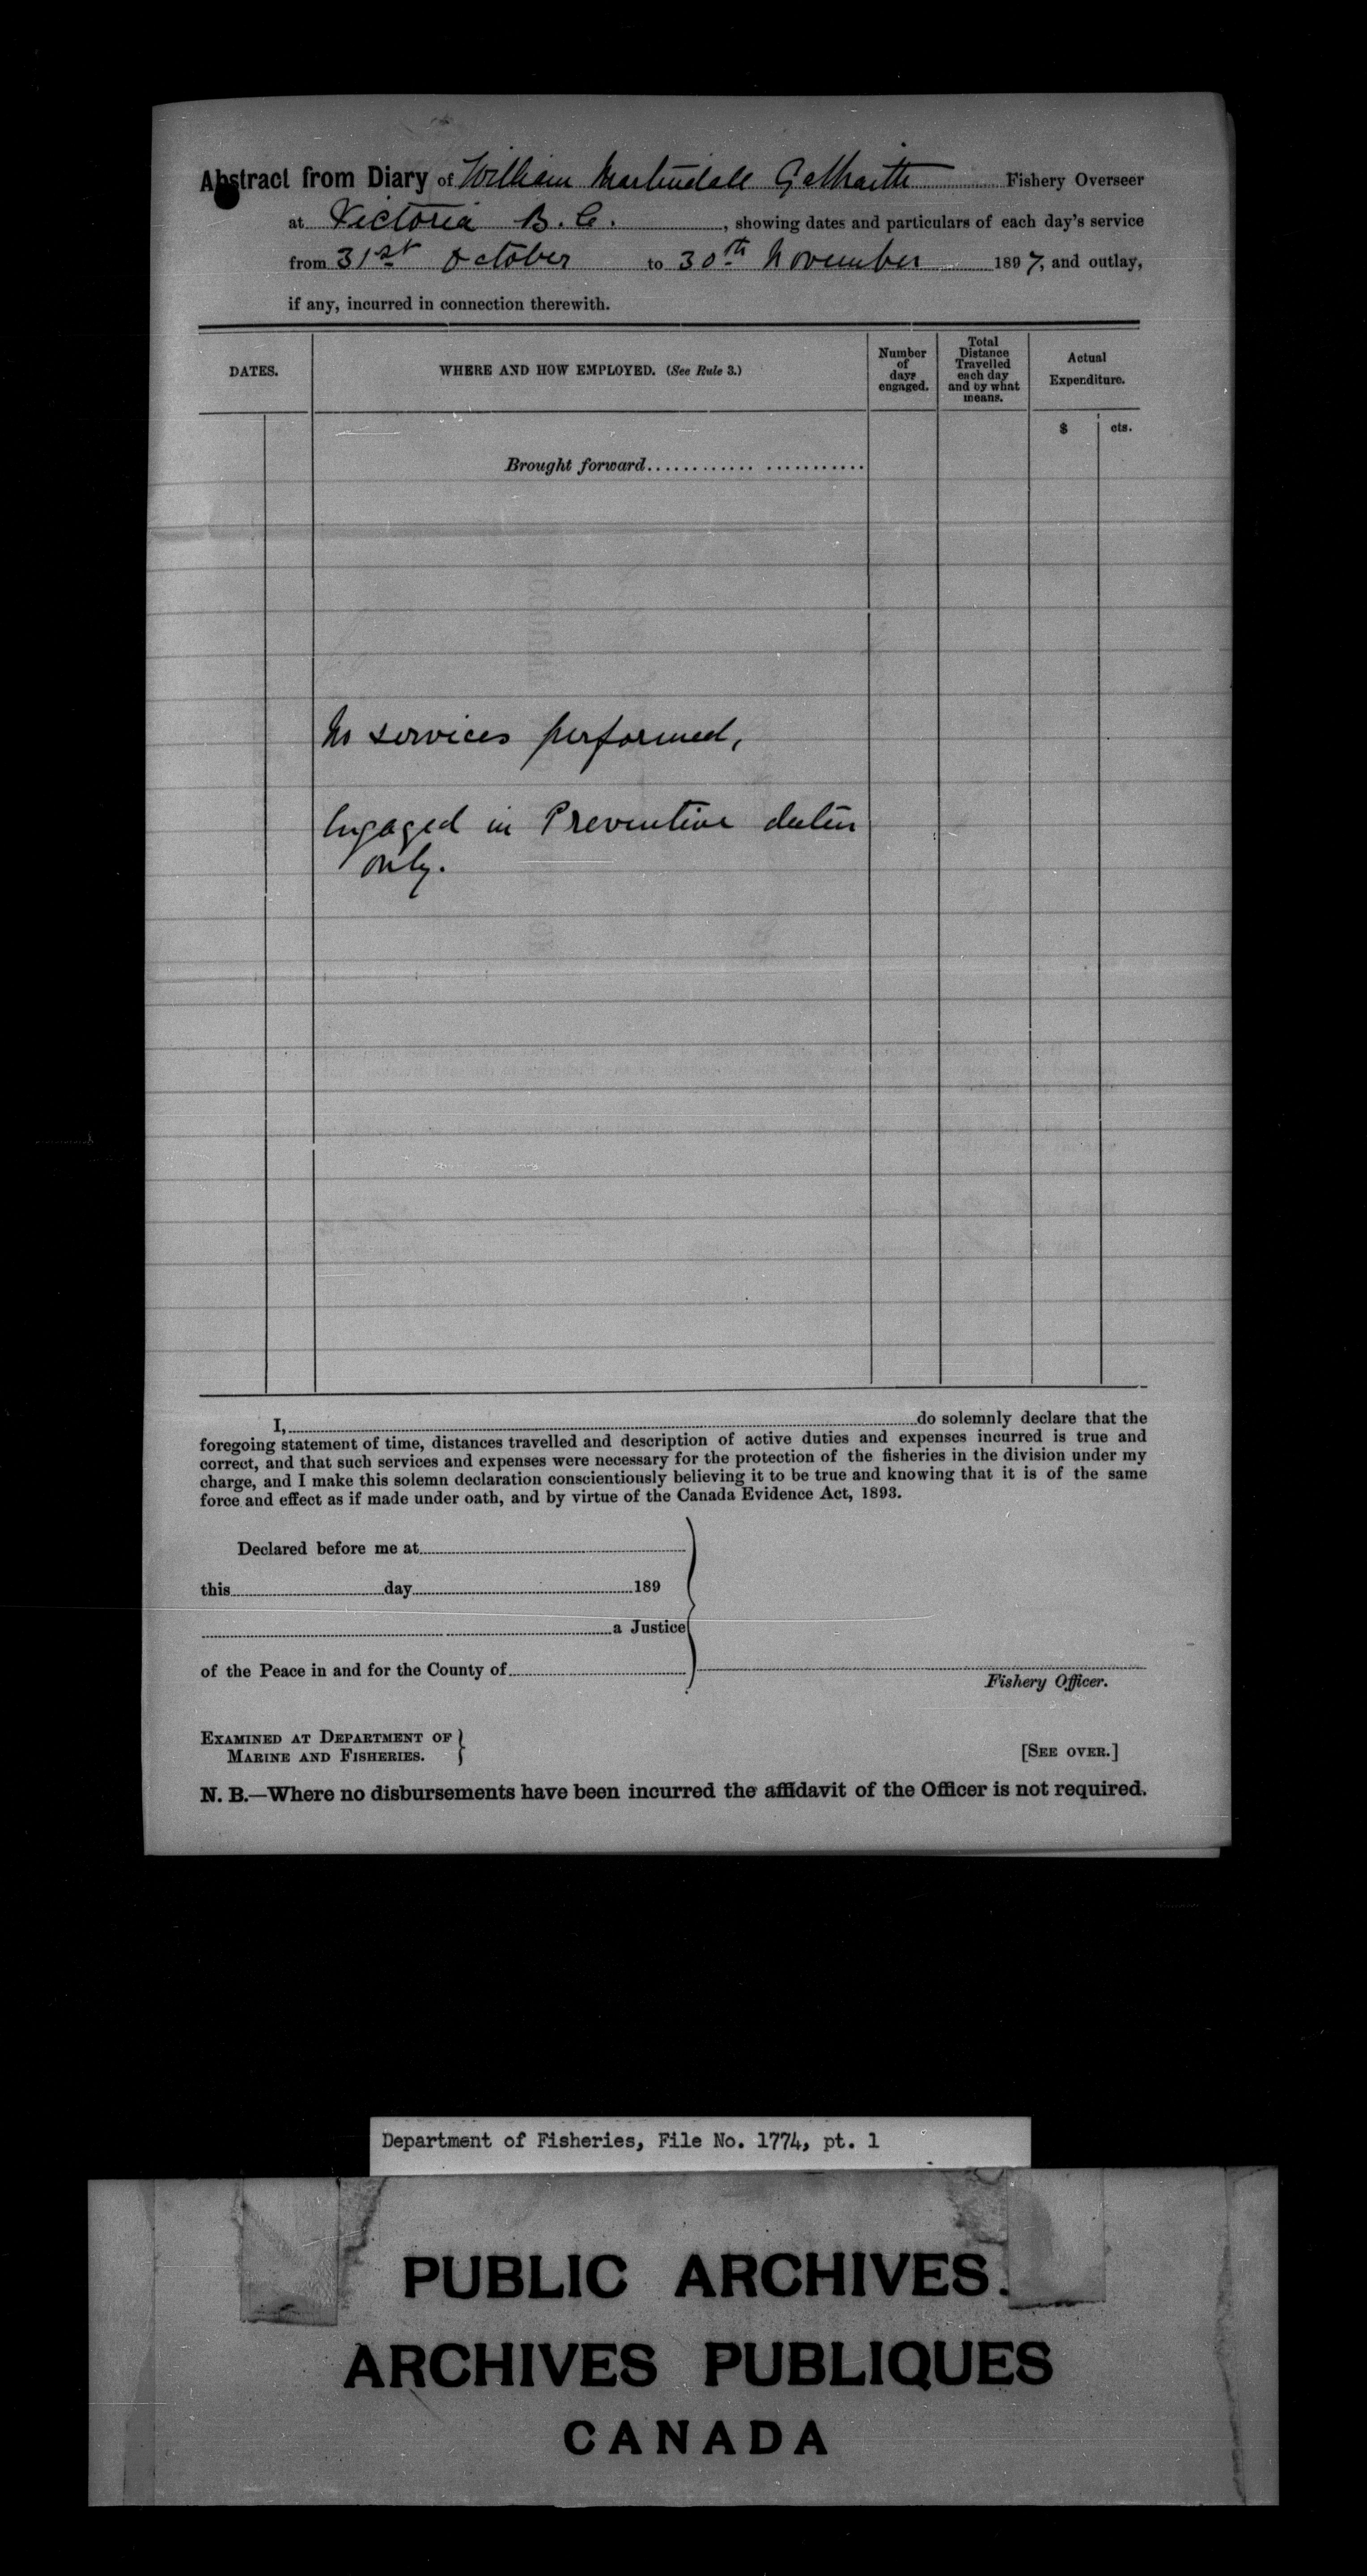 Abstract from Diary of William Martindale Galbraith Fishery Overseer
at Victoria B. C. , showing dates and particulars of each day's service
from 31st October to 30th November 1897, and outlay,
if any, incurred in connection therewith.
DATES.
WHERE AND HOW EMPLOYED. (See Rule 3.)
Number
of
days
engaged.
Total
Distance
Travelled
each day
and by what
means.
Actual
Expenditure.
$ cts.
Brought forward
No services performed,
Engaged in Preventive duties
only.
I, do solemnly declare that the
foregoing statement of time, distances travelled and description of active duties and expenses incurred is true and
correct, and that such services and expenses were necessary for the protection of the fisheries in the division under my
charge, and I make this solemn declaration conscientiously believing it to be true and knowing that it is of the same
force and effect as if made under oath, and by virtue of the Canada Evidence Act, 1893.
Declared before me at
this day 189
a Justice
of the Peace in and for the County of
Fishery Officer.
EXAMINED AT DEPARTMENT OF
MARINE AND FISHERIES.
[SEE OVER.]
N. B.—Where no disbursements have been incurred the affidavit of the Officer is not required.
Department of Fisheries, File No. 1774, pt. 1
PUBLIC ARCHIVES.
ARCHIVES PUBLIQUES
CANADA